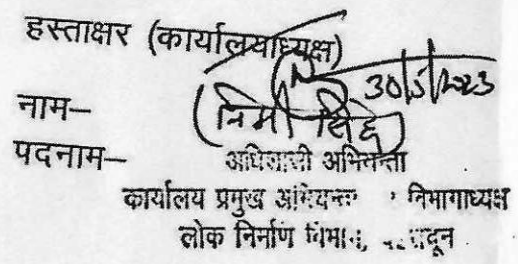 हस्ताक्षर (कार्यालयाध्यक्ष)
30/5/2023
नाम–
सिंह)
पदनाम–
अधिशासी अभियन्ता
कार्यालय प्रमुख अभियन्ता विभागाध्यक्ष
लोक निर्माण विभाग,